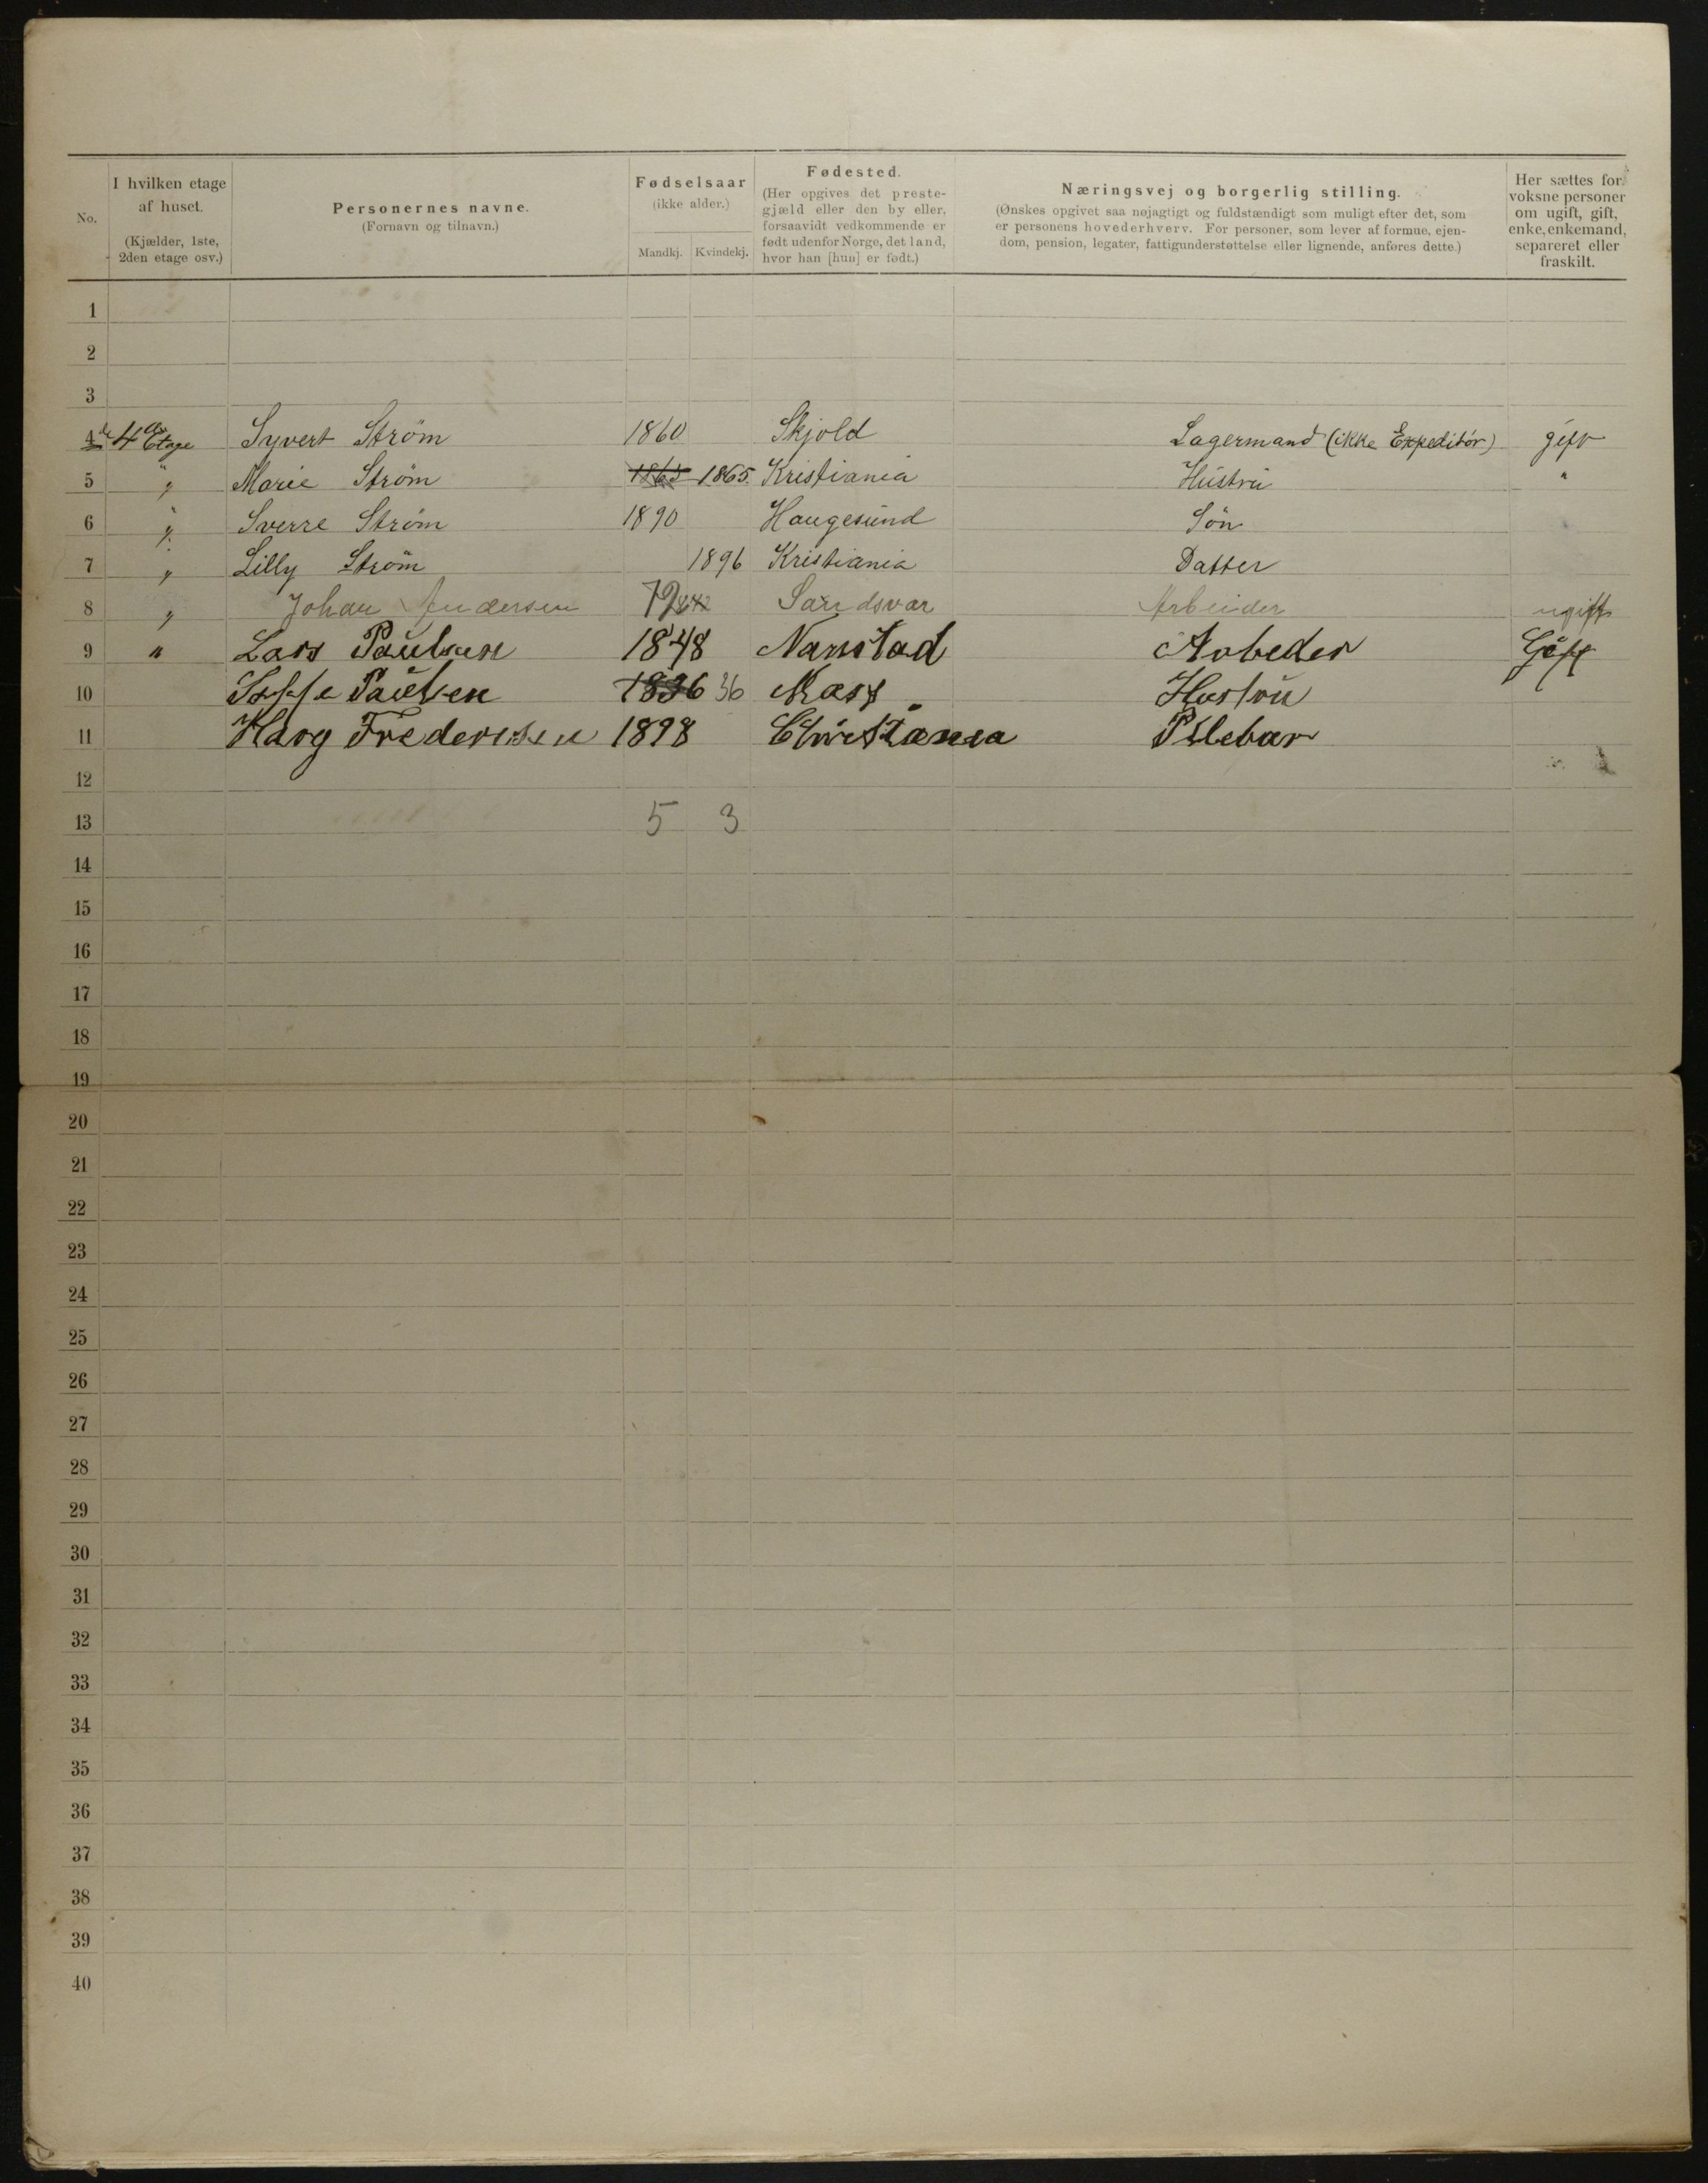 No.
I hvilken etage af huset.
(Kjælder, 1ste, 2den etage osv.)
Personernes navne.
(Fornavn og tilnavn.)
Fødselsaar
(ikke alder.)
Mandkj. Kvindekj.
Fødested.
(Her opgives det preste-
gjæld eller den by eller,
forsaavidt vedkommende er
født udenfor Norge, det land,
hvor han [hun] er født.)
Næringsvej og borgerlig stilling.
(Ønskes opgivet saa nøjagtigt og fuldstændigt som muligt efter det, som
er personens hovederhverv. For personer, som lever af formue, ejen-
dom, pension, legater, fattigunderstøttelse eller lignende, anføres dette.)
Her sættes for
voksne personer
om ugift, gift,
enke, enkemand,
separeret eller
fraskilt.
1
2
3
4 4de Etage Syvert Ström 1860 Skjold Lagermand (ikke Expeditör) gift
5 " Marie Ström 1865 1865. Kristiania Hustru "
6 " Sverre Ström 1890 Haugesund Sön
7 " Lilly Ström 1896 Kristiania Datter
8 " Johan Andersen 72 Sandsvær Arbeider ugift
9 " Lars Paulsen 1848 Nanstad Arbeder Gift
10 Paulsen 1836 36 Hustru
11 Harg Fredericksen 1898 Christiania Plebar
12
13 5 3
14
15
16
17
18
19
20
21
22
23
24
25
26
27
28
29
30
31
32
33
34
35
36
37
38
39
40